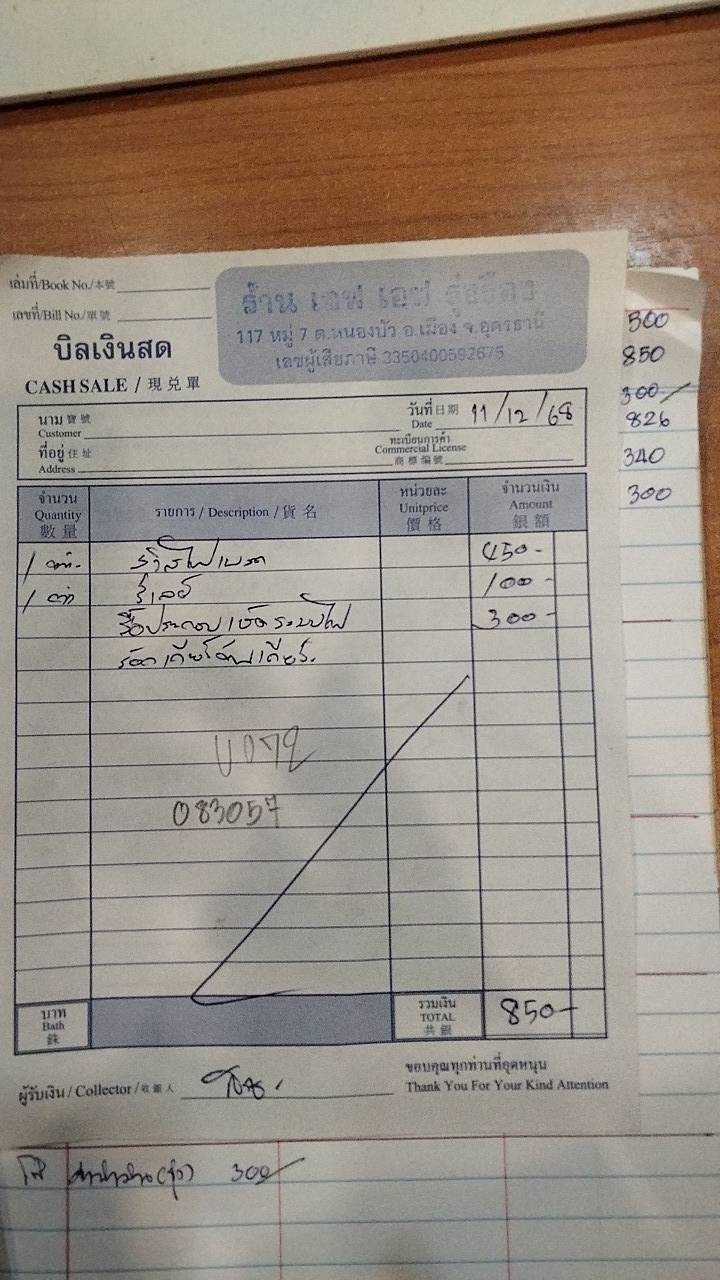 เล่มที่/Book No./本號
เลขที่/Bill No./單號
บิลเงินสด
CASH SALE / 現兌單
ร้าน เอฟ เอฟ รุ่งเรือง
117 หมู่ 7 ต.หนองบัว อ.เมือง จ.อุดรธานี
เลขผู้เสียภาษี 3350400592675
นาม 寶號
Customer
วันที่ 日期
Date 11/12/68
ที่อยู่ 住址
Address
ทะเบียนการค้า
Commercial License
商標編號
จำนวน
Quantity
數量
รายการ / Description / 貨名
หน่วยละ
Unitprice
價格
จำนวนเงิน
Amount
銀額
1 ตัว สวิสไฟเบรค 450-
1 ตัว รีเลย์ 100-
รื้อประกอบเช็คระบบไฟ 300-
083057
บาท
Bath
銖
รวมเงิน
TOTAL
共銀
850-
ผู้รับเงิน / Collector / 收銀人
ขอบคุณทุกท่านที่อุดหนุน
Thank You For Your Kind Attention
300
850
300
826
340
300
300